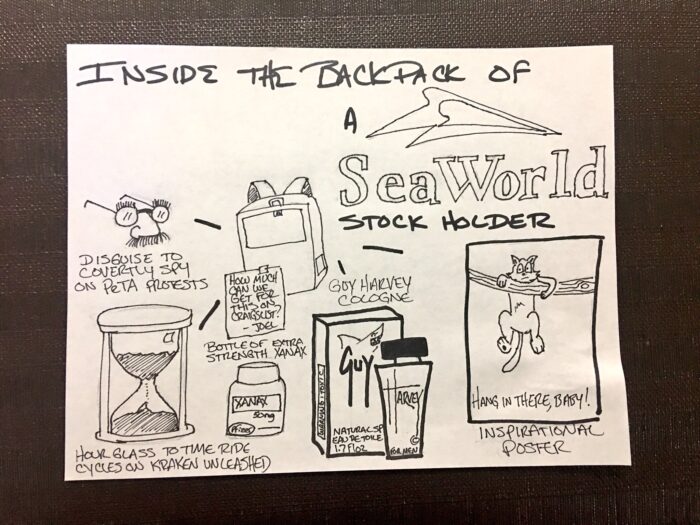 INSIDE THE BACKPACK OF
A
SeaWorld
STOCK HOLDER
DISGUISE TO
COVERTLY SPY
ON PETA PROTESTS
HOW MUCH
CAN WE
GET FOR
THIS ON
CRAIGSLIST?
- JOEL
GUY HARVEY
COLOGNE
BOTTLE OF EXTRA
STRENGTH XANAX
XANAX
50mg
Pfizer
GUY
NATURAL SP
EAU DE TOILE
1.7 FL OZ
HARVEY
©
FOR MEN
HANG IN THERE, BABY!
INSPIRATIONAL
POSTER
HOUR GLASS TO TIME RIDE
CYCLES ON KRAKEN UNLEASHED